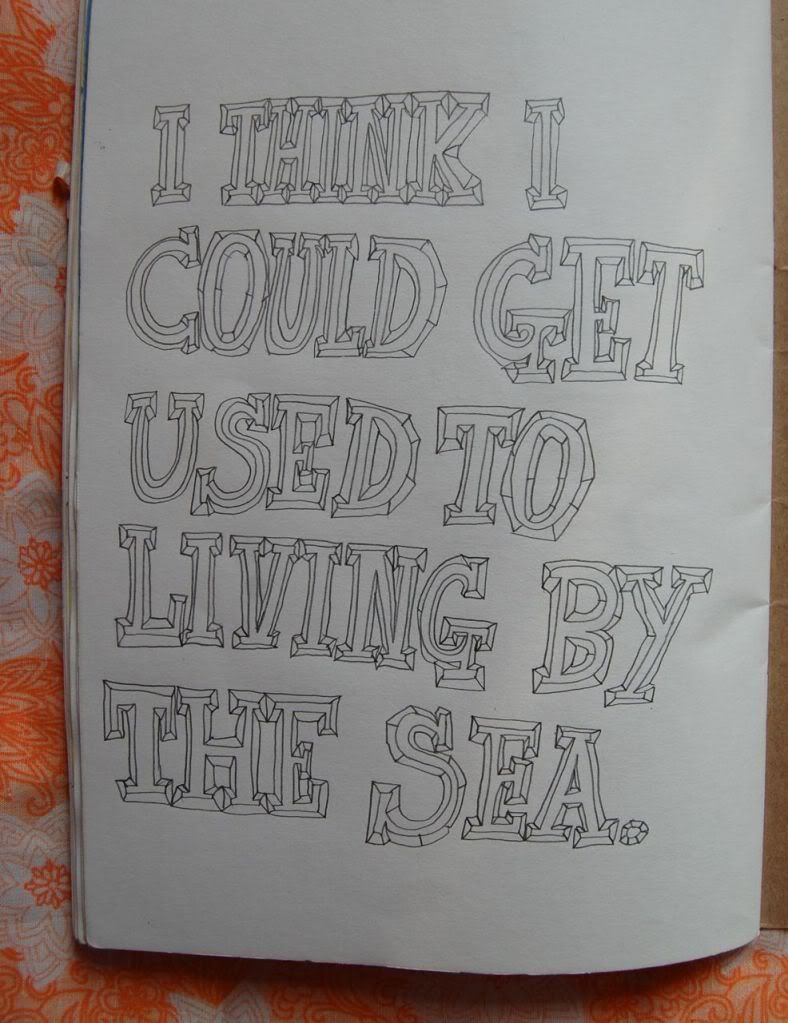 I THINK I
COULD GET
USED TO
LIVING BY
THE SEA.